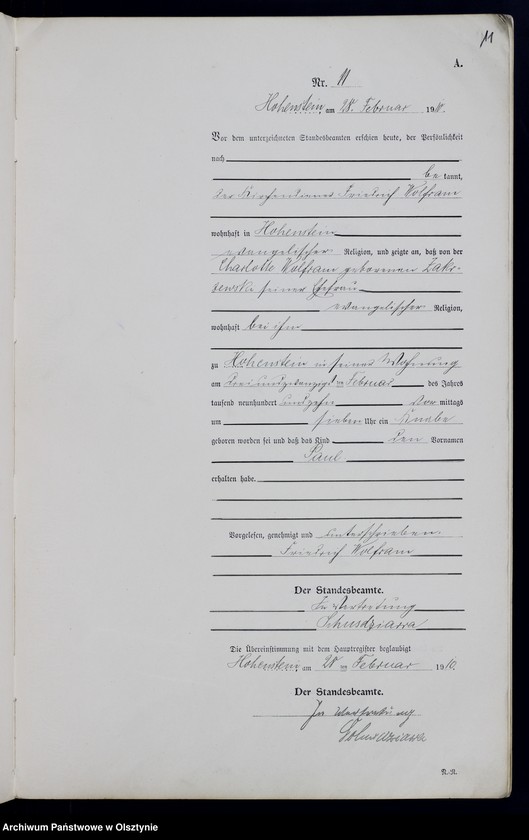 11
A.
Nr. 11
Hohenstein, am 28. Februar 1910.
Vor dem unterzeichneten Standesbeamten erschien heute, der Persönlichkeit
nach
be kannt,
der Kirchendiener Friedrich Wolfram
wohnhaft in Hohenstein
evangelischer Religion, und zeigte an, daß von der
Charlotte Wolfram geborenen Zakr-
zewski seiner Ehefrau
evangelischer Religion,
wohnhaft bei ihm
zu Hohenstein in seiner Wohnung
am drei und zwanzigsten Februar des Jahres
tausend neunhundert und zehn Vor mittags
um sieben Uhr ein Knabe
geboren worden sei und daß das Kind den Vornamen
Paul
erhalten habe.
Vorgelesen, genehmigt und unterschrieben.
Friedrich Wolfram
Der Standesbeamte.
In Vertretung
Die Übereinstimmung mit dem Hauptregister beglaubigt
Hohenstein, am 28 ten Februar 1910.
Der Standesbeamte.
In Vertretung
Archiwum Państwowe w Olsztynie